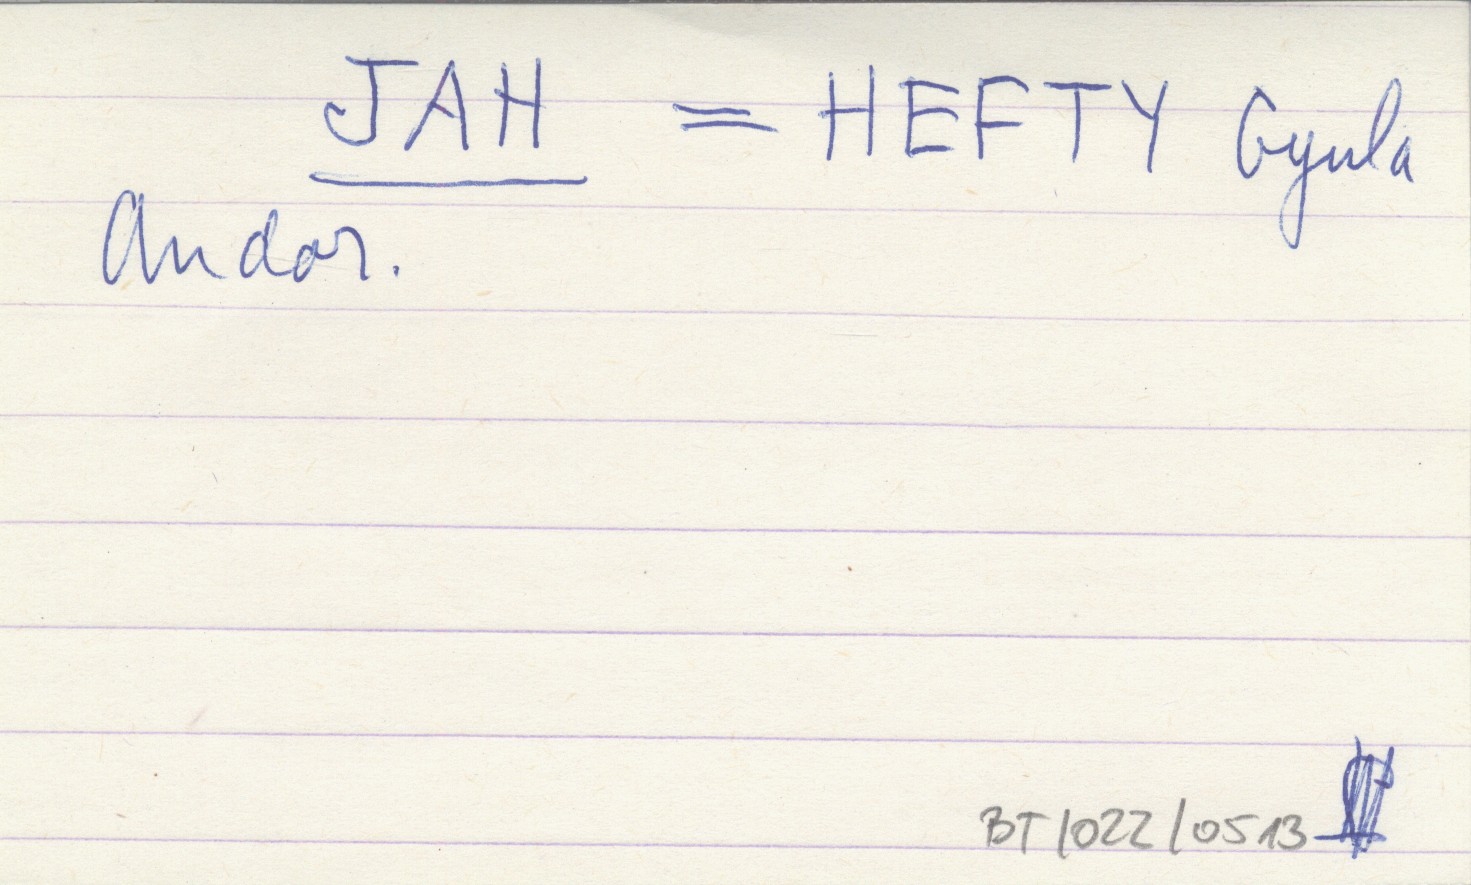 JAH = HEFTY Gyula
Andor.
BT/022/0513